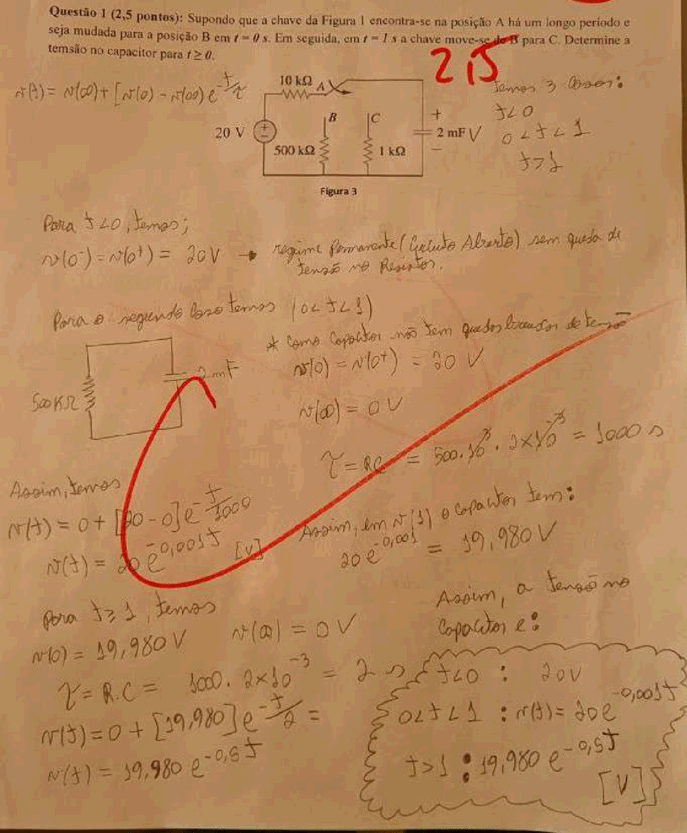 Questão 1 (2,5 pontos): Supondo que a chave da Figura 1 encontra-se na posição A há um longo período e
seja mudada para a posição B em t = 0 s. Em seguida, em t = 1 s a chave move-se de B para C. Determine a
temsão no capacitor para t ≥ 0.
2,5
v(t) = v(∞) + [v(0) - v(∞)] e^-t/τ
10 kΩ A
B C
20 V
500 kΩ
1 kΩ
+
2 mF V
−
Figura 3
temos 3 casos:
t<0
0<t<1
t>1
Para t<0, temos;
v(0⁻) = v(0⁺) = 20V → regime Permanente (Circuito Aberto) sem queda de
tensão no Resistor.
Para o segundo caso temos (0<t<1)
500KΩ
2mF
* Como Capacitor não tem quedas bruscas de tensão
v(0) = v(0⁺) = 20 V
v(∞) = 0V
τ = RC = 500.10³ . 2×10⁻³ = 1000 s
Assim, temos
v(t) = 0 + [20-0] e^-t/1000
v(t) = 20 e^-0,001t [V]
Assim, em v(1) o capacitor tem:
20 e^-0,001 = 19,980 V
Para t≥1, temos
v(0) = 19,980 V v(∞) = 0V
τ = R.C = 1000. 2×10⁻³ = 2 s
v(t) = 0 + [19,980] e^-t/2 =
v(t) = 19,980 e^-0,5t
Assim, a tensão no
capacitor é:
t<0 : 20V
0<t<1 : v(t) = 20e^-0,001t
t>1 : 19,980 e^-0,5t
[V]